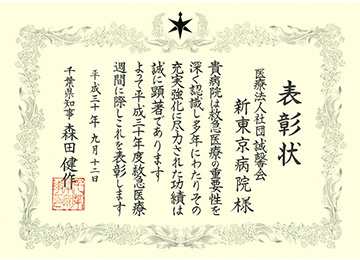 表彰状
医療法人社団誠馨会
新東京病院 様
貴病院は救急医療の重要性を
深く認識し多年にわたりその
充実強化に尽力された功績は
誠に顕著であります
よって平成三十年度救急医療
週間に際しこれを表彰します
平成三十年九月十二日
千葉県知事 森田健作